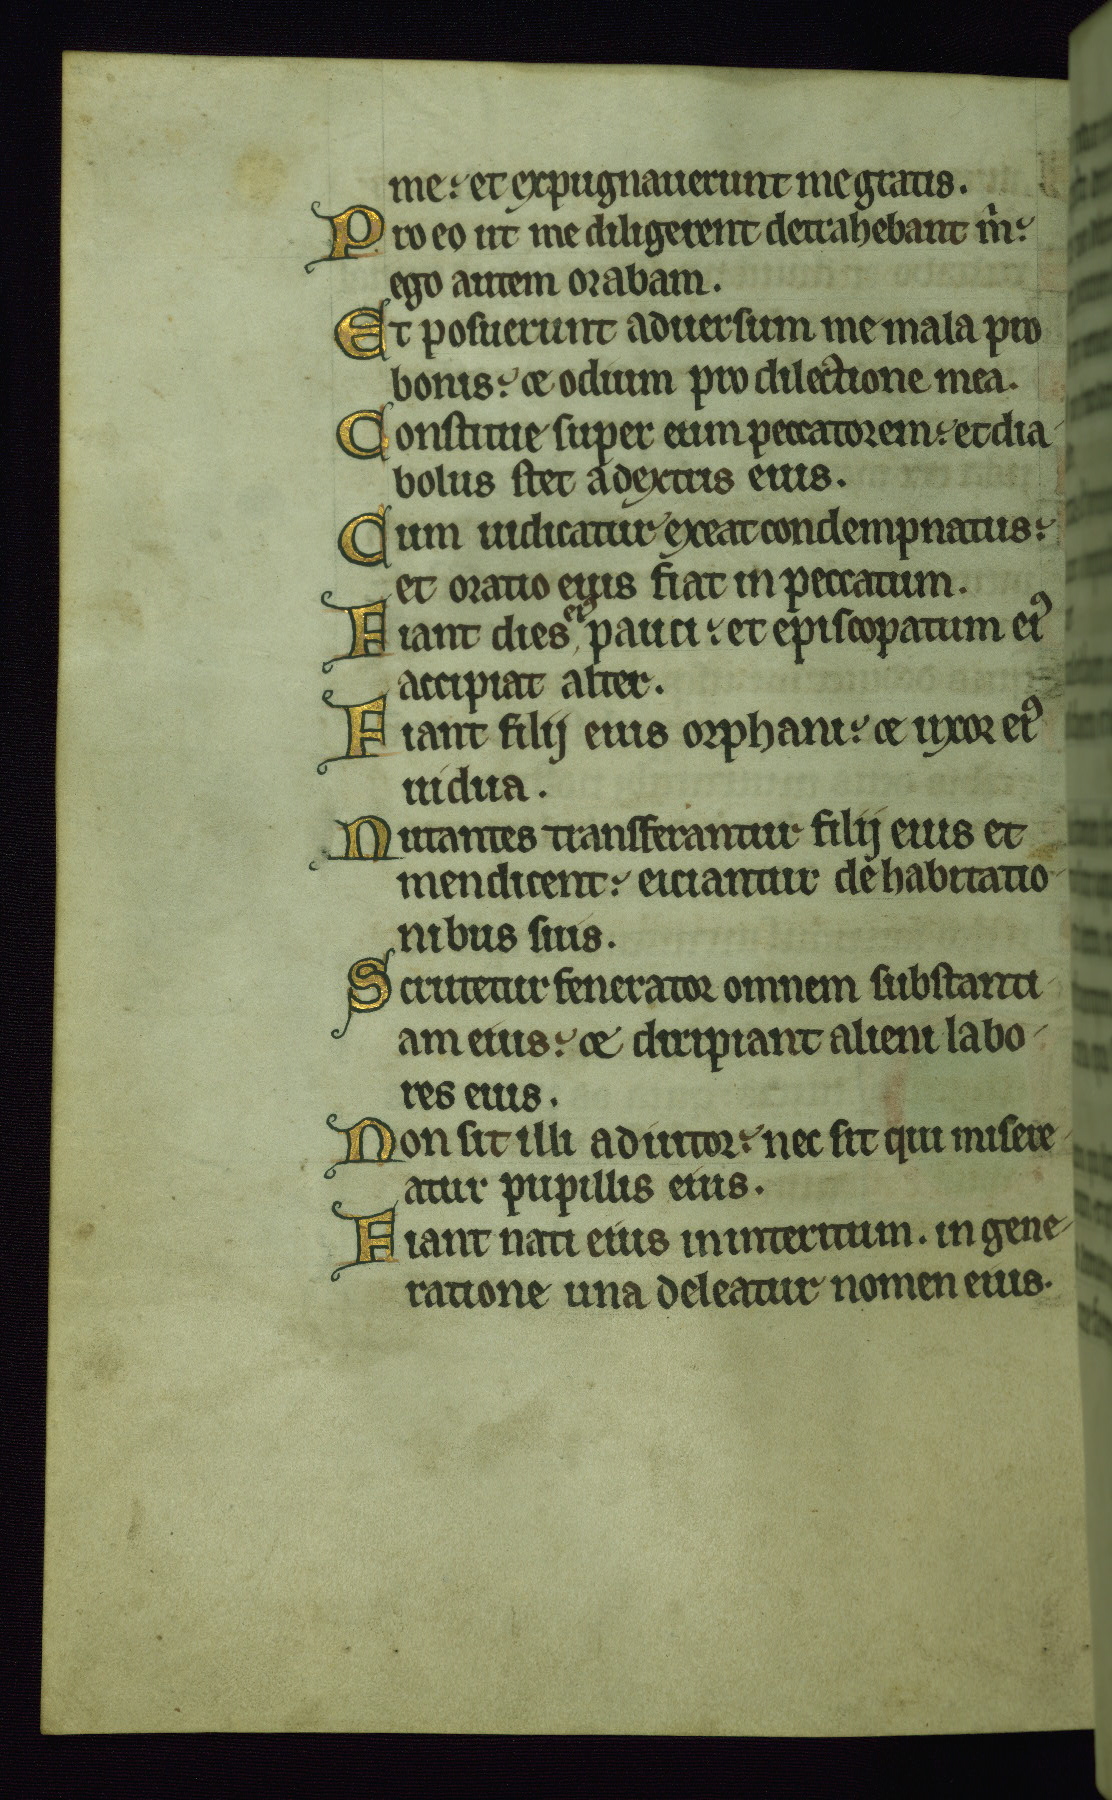 me: et expugnauerunt me gratis.
Pro eo ut me diligerent detrahebant m̉:
ego autem orabam.
Et posuerunt aduersum me mala pro
bonis: & odium pro dilectione mea.
Constitue super eum peccatorem: et dia
bolus stet a dextris eius.
Cum iudicatur exeat condempnatus:
et oratio eius fiat in peccatum.
Fiant dies ei9 pauci: et episcopatum ei9
accipiat alter.
Fiant filij eius orphani: & uxor ei9
uidua.
Nutantes transferantur filij eius et
mendicent: eiciantur de habitatio
nibus suis.
Scrutetur fenerator omnem substanti
am eius: & diripiant alieni labo
res eius.
Non sit illi adiutor: nec sit qui misere
atur pupillis eius.
Fiant nati eius in interitum. in gene
ratione una deleatur nomen eius.